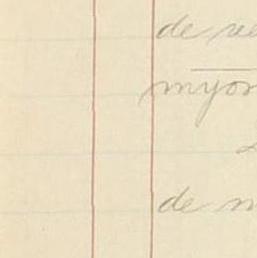 de re
myor
de m